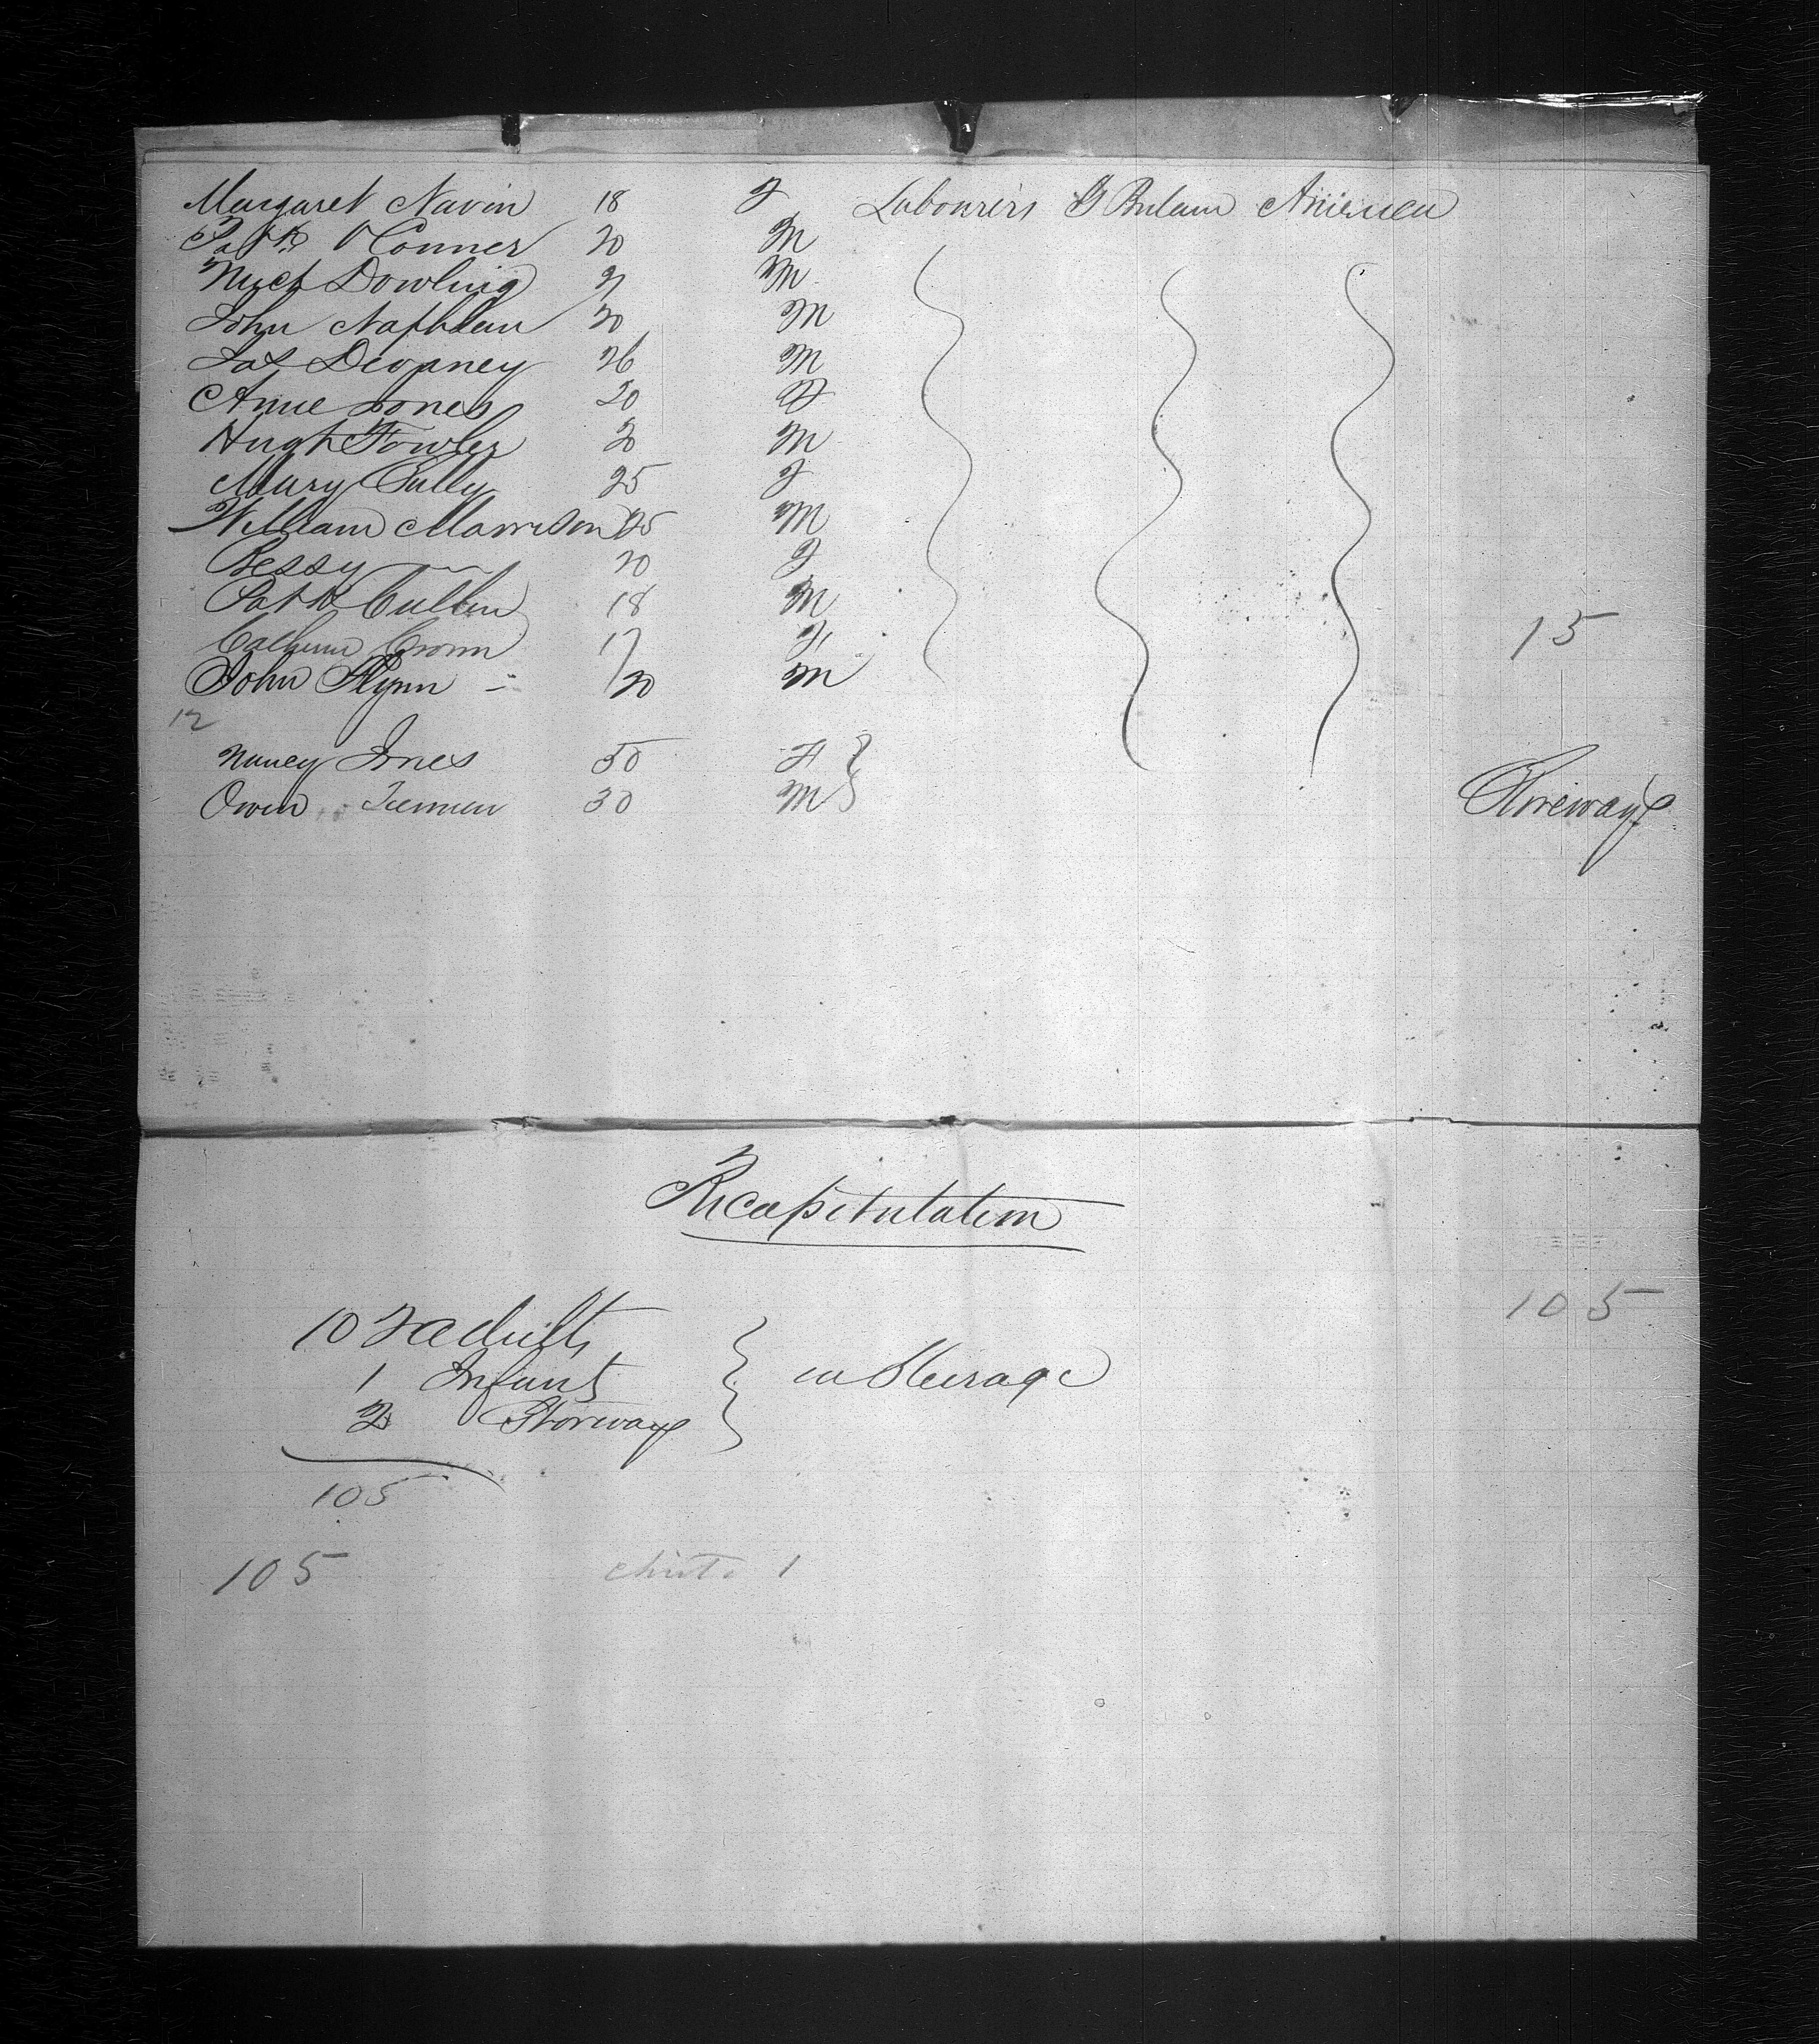 Margaret Navin 18 F Labourers G Britain America
Patk O'Conner 20 M
Mich Dowling 21 M
John Naphlein 20 M
Jas Devaney 26 M
Anne Jones 20 F
Hugh Fowler 20 M
Mary Sully 25 F
William Morrison 25 M
Bessy — 20 F
Patk Cullen 18 M
Cronin 17 F 15
John Flynn 20 M
12
Nancy Jones 50 F
Owen 30 M Stoweways
Recapitulation
105
102 adults
1 Infant in Steerage
2 Stoways
105
105 1